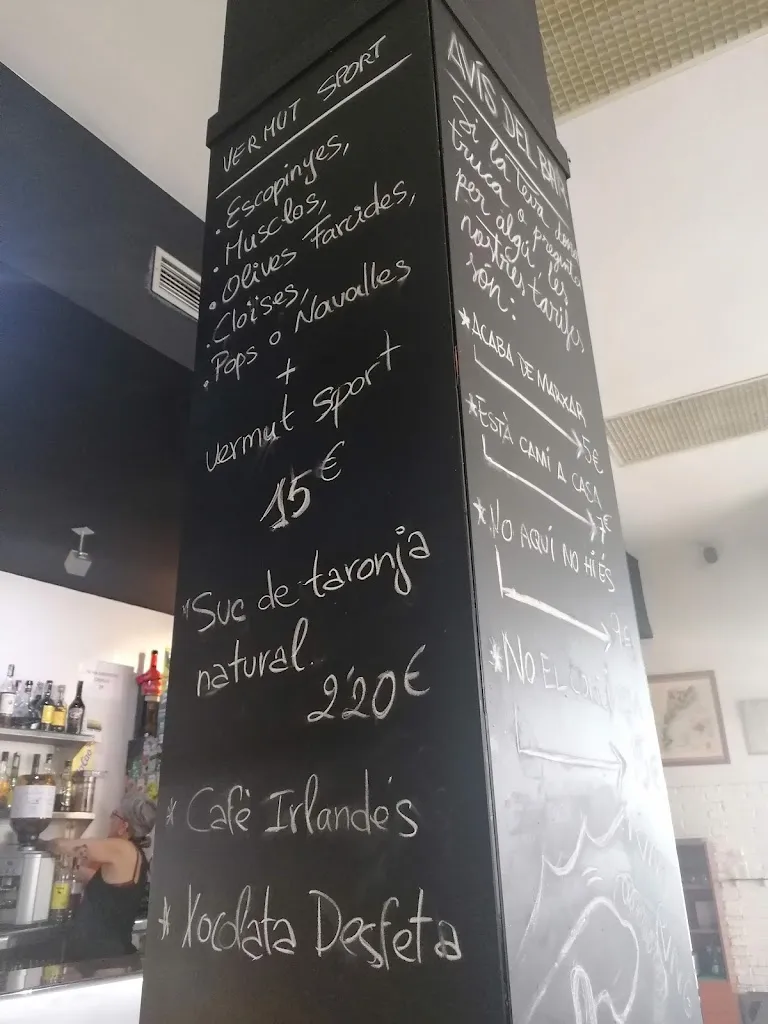 VERMUT SPORT
· Escopinyes,
· Musclos,
· Olives Farcides,
· Cloïses,
· Pops o Navalles
+
vermut Sport
15€
* Suc de taronja
natural
2'20€
* Cafè Irlandés
* Xocolata Desfeta
AVÍS DEL BAR
Si la teva dona
truca o pregunta
per algú, les
nostres tarifes
són:
* ACABA DE MARXAR
5€
* ESTÀ CAMÍ A CASA
7€
* NO AQUÍ NO HI ÉS
9€
* NO EL